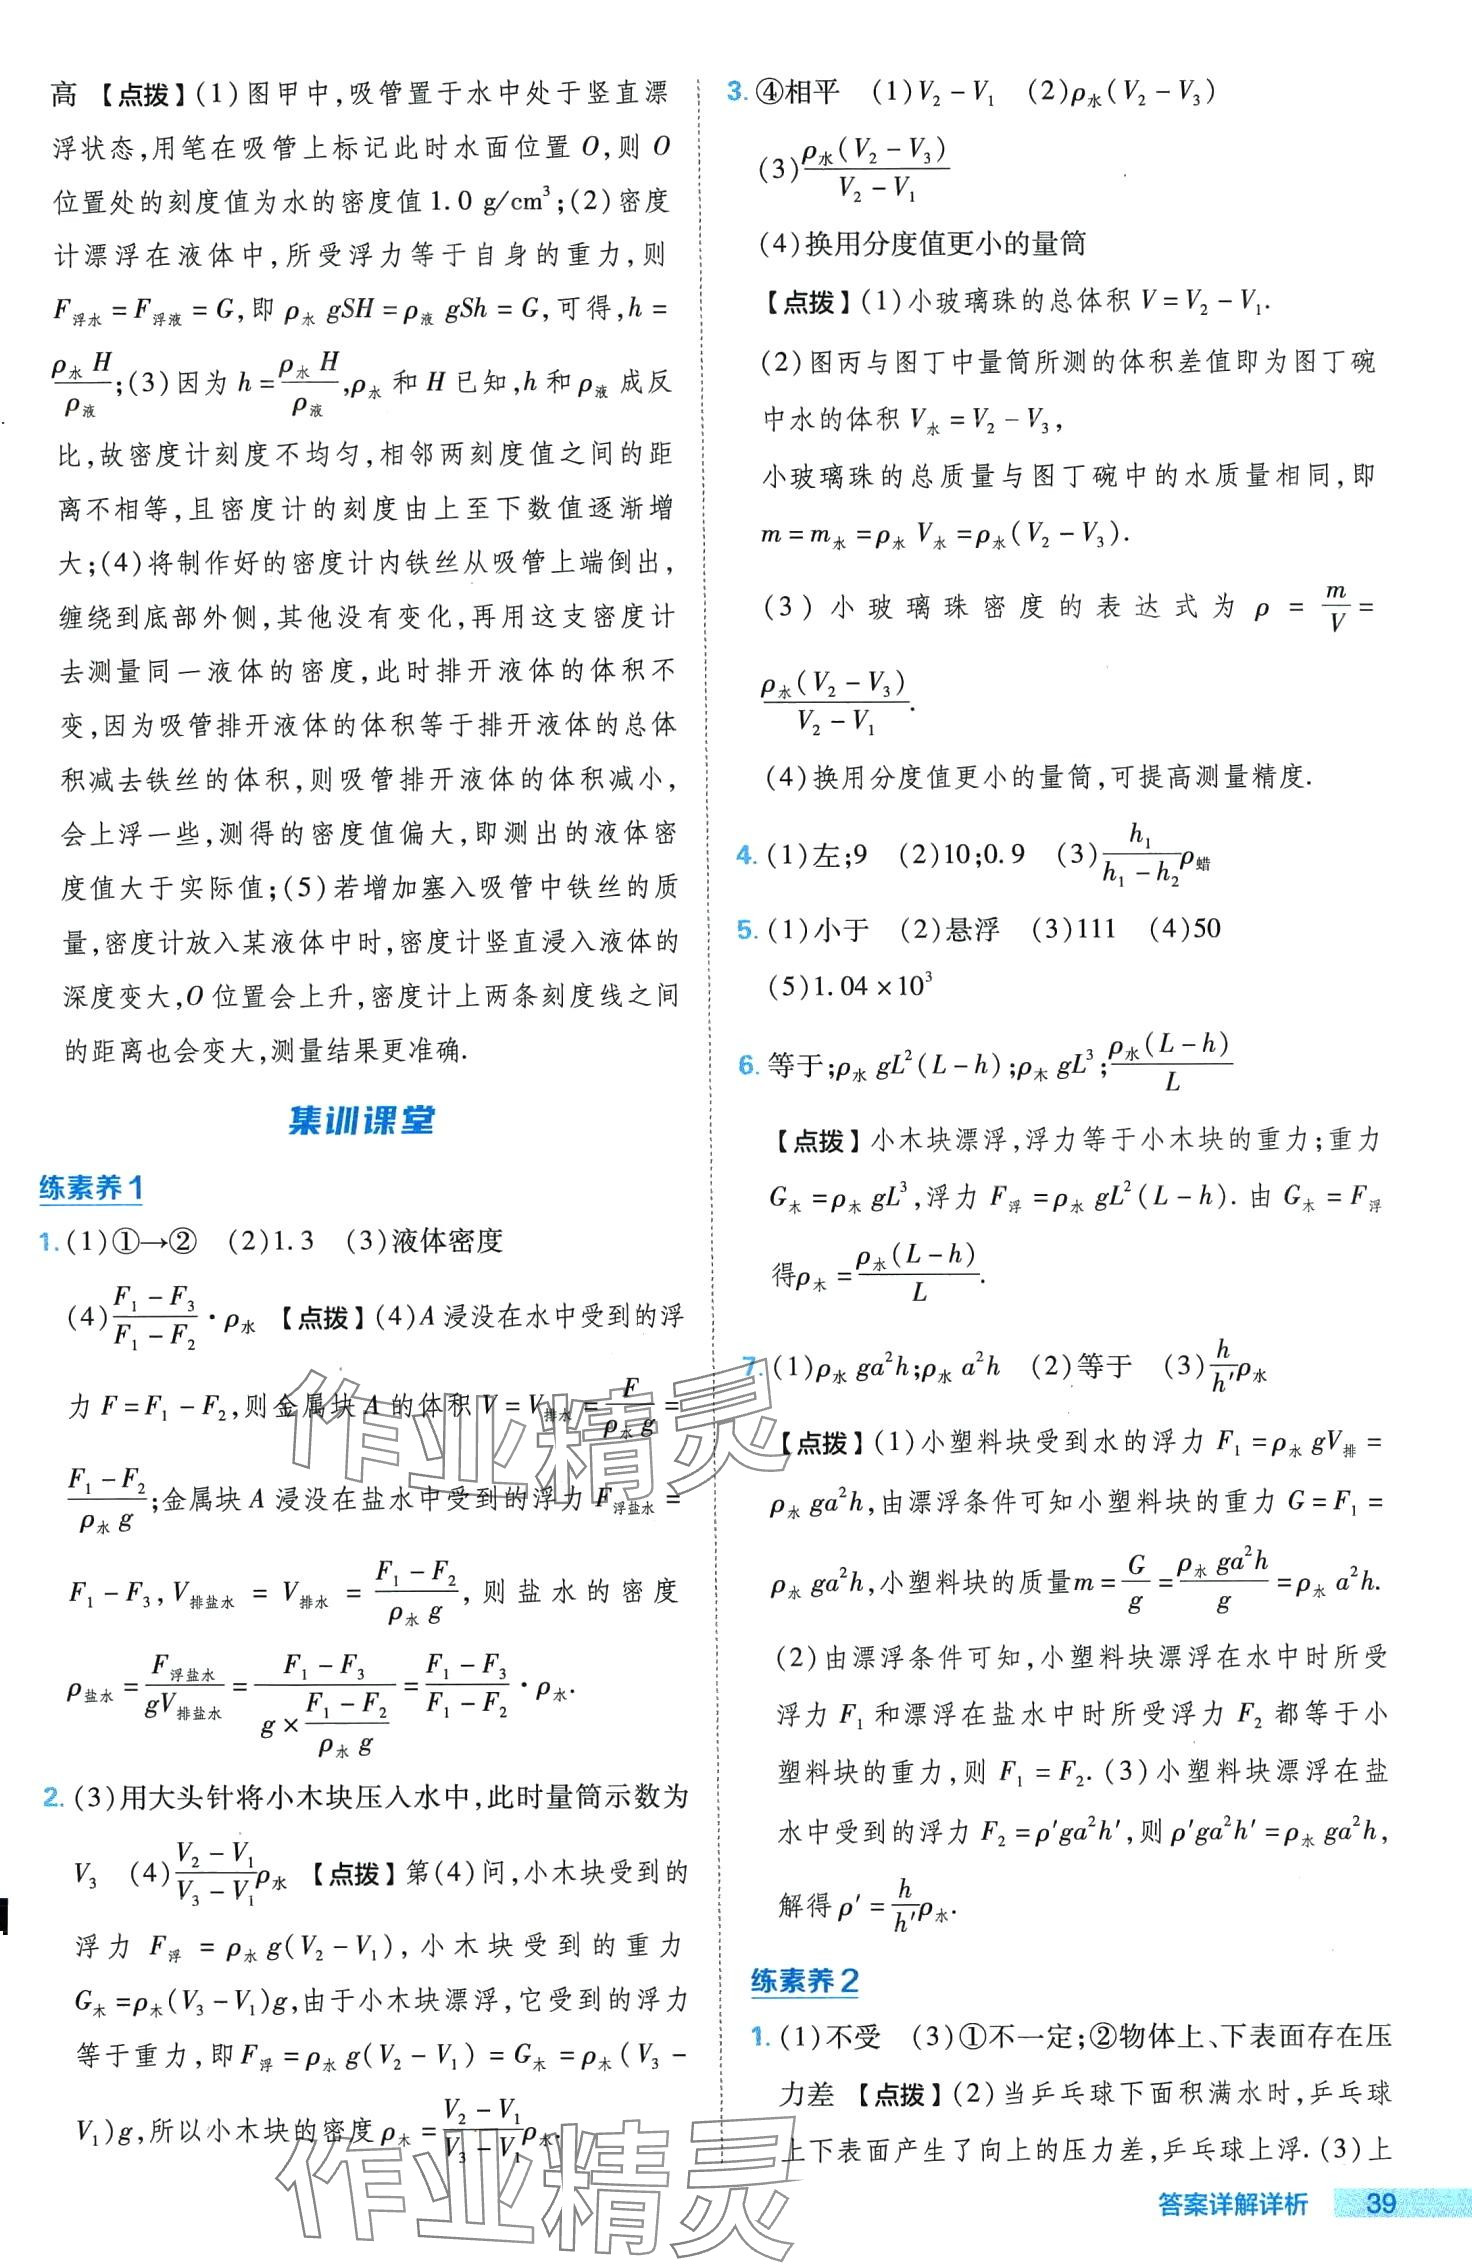 高 【点拨】(1)图甲中,吸管置于水中处于竖直漂
浮状态,用笔在吸管上标记此时水面位置 O,则 O
位置处的刻度值为水的密度值 1.0 g/cm³;(2)密度
计漂浮在液体中,所受浮力等于自身的重力,则
F浮水=F浮液=G,即 ρ水 gSH=ρ液 gSh=G,可得,h=
ρ水 H/ρ液;(3)因为 h=ρ水 H/ρ液,ρ水 和 H 已知,h 和 ρ液 成反
比,故密度计刻度不均匀,相邻两刻度值之间的距
离不相等,且密度计的刻度由上至下数值逐渐增
大;(4)将制作好的密度计内铁丝从吸管上端倒出,
缠绕到底部外侧,其他没有变化,再用这支密度计
去测量同一液体的密度,此时排开液体的体积不
变,因为吸管排开液体的体积等于排开液体的总体
积减去铁丝的体积,则吸管排开液体的体积减小,
会上浮一些,测得的密度值偏大,即测出的液体密
度值大于实际值;(5)若增加塞入吸管中铁丝的质
量,密度计放入某液体中时,密度计竖直浸入液体的
深度变大,O 位置会上升,密度计上两条刻度线之间
的距离也会变大,测量结果更准确.
集训课堂
练素养1
1.(1)①→② (2)1.3 (3)液体密度
(4)(F₁-F₃)/(F₁-F₂)·ρ水 【点拨】(4)A 浸没在水中受到的浮
力 F=F₁-F₂,则金属块 A 的体积 V=V排水=F/(ρ水 g)=
(F₁-F₂)/(ρ水 g);金属块 A 浸没在盐水中受到的浮力 F浮盐水=
F₁-F₃,V排盐水=V排水=(F₁-F₂)/(ρ水 g),则盐水的密度
ρ盐水=F浮盐水/(gV排盐水)=(F₁-F₃)/(g×(F₁-F₂)/(ρ水 g))=(F₁-F₃)/(F₁-F₂)·ρ水.
2.(3)用大头针将小木块压入水中,此时量筒示数为
V₃ (4)(V₂-V₁)/(V₃-V₁)ρ水 【点拨】第(4)问,小木块受到的
浮力 F浮=ρ水 g(V₂-V₁),小木块受到的重力
G木=ρ木(V₃-V₁)g,由于小木块漂浮,它受到的浮力
等于重力,即F浮=ρ水 g(V₂-V₁)=G木=ρ木(V₃-
V₁)g,所以小木块的密度 ρ木=(V₂-V₁)/(V₃-V₁)ρ水.
3.④相平 (1)V₂-V₁ (2)ρ水(V₂-V₃)
(3)ρ水(V₂-V₃)/(V₂-V₁)
(4)换用分度值更小的量筒
【点拨】(1)小玻璃珠的总体积 V=V₂-V₁.
(2)图丙与图丁中量筒所测的体积差值即为图丁碗
中水的体积 V水=V₂-V₃,
小玻璃珠的总质量与图丁碗中的水质量相同,即
m=m水=ρ水 V水=ρ水(V₂-V₃).
(3)小玻璃珠密度的表达式为 ρ=m/V=
ρ水(V₂-V₃)/(V₂-V₁).
(4)换用分度值更小的量筒,可提高测量精度.
4.(1)左;9 (2)10;0.9 (3)h₁/(h₁-h₂)ρ蜡
5.(1)小于 (2)悬浮 (3)111 (4)50
(5)1.04×10³
6.等于;ρ水 gL²(L-h);ρ木 gL³;ρ水(L-h)/L
【点拨】小木块漂浮,浮力等于小木块的重力;重力
G木=ρ木 gL³,浮力 F浮=ρ水 gL²(L-h).由 G木=F浮
得ρ木=ρ水(L-h)/L.
7.(1)ρ水 ga²h;ρ水 a²h (2)等于 (3)h/h′ρ水
【点拨】(1)小塑料块受到水的浮力 F₁=ρ水 gV排=
ρ水 ga²h,由漂浮条件可知小塑料块的重力 G=F₁=
ρ水 ga²h,小塑料块的质量m=G/g=ρ水 ga²h/g=ρ水 a²h.
(2)由漂浮条件可知,小塑料块漂浮在水中时所受
浮力 F₁ 和漂浮在盐水中时所受浮力 F₂ 都等于小
塑料块的重力,则 F₁=F₂.(3)小塑料块漂浮在盐
水中受到的浮力 F₂=ρ′ga²h′,则 ρ′ga²h′=ρ水 ga²h,
解得 ρ′=h/h′ρ水.
练素养2
1.(1)不受 (3)①不一定;②物体上、下表面存在压
力差 【点拨】(2)当乒乓球下面积满水时,乒乓球
上下表面产生了向上的压力差,乒乓球上浮.(3)上
答案详解详析 39
作业精灵
作业精灵